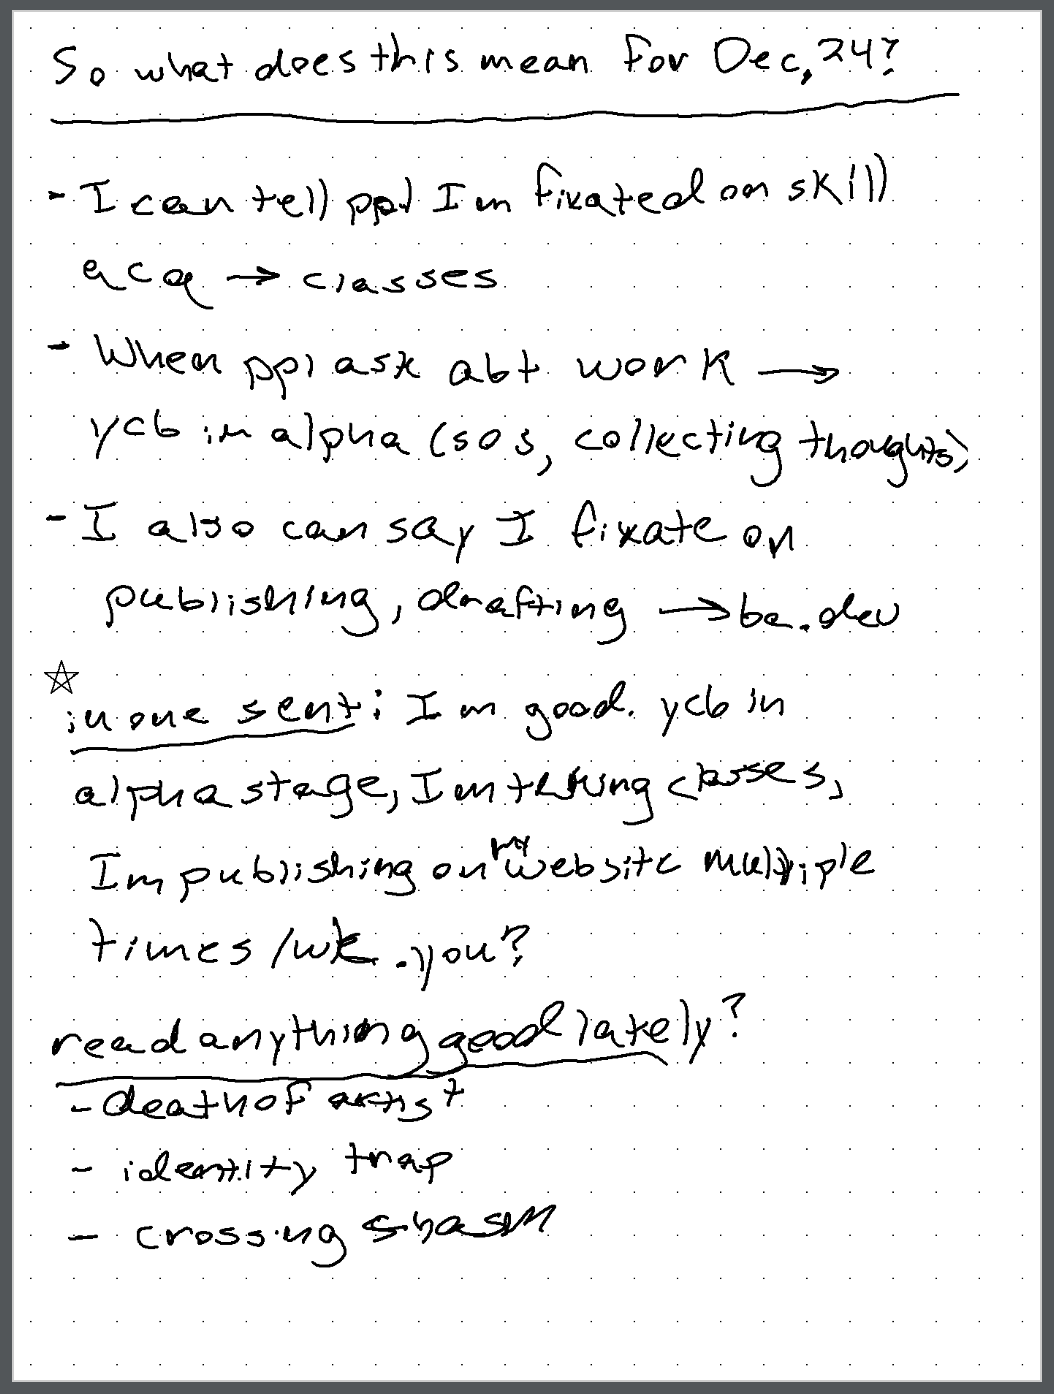 So what does this mean for Dec, 24?
- I can tell ppl Im fixated on skill
acq → classes
- When ppl ask abt work →
ycb in alpha (sos, collecting thoughts)
- I also can say I fixate on
publishing, drafting → ba.dev
☆
in one sent: Im good. ycb in
alpha stage, Im taking classes,
Im publishing on my website multiple
times/wk. you?
read anything good lately?
- death of artist
- identity trap
- crossing shasm